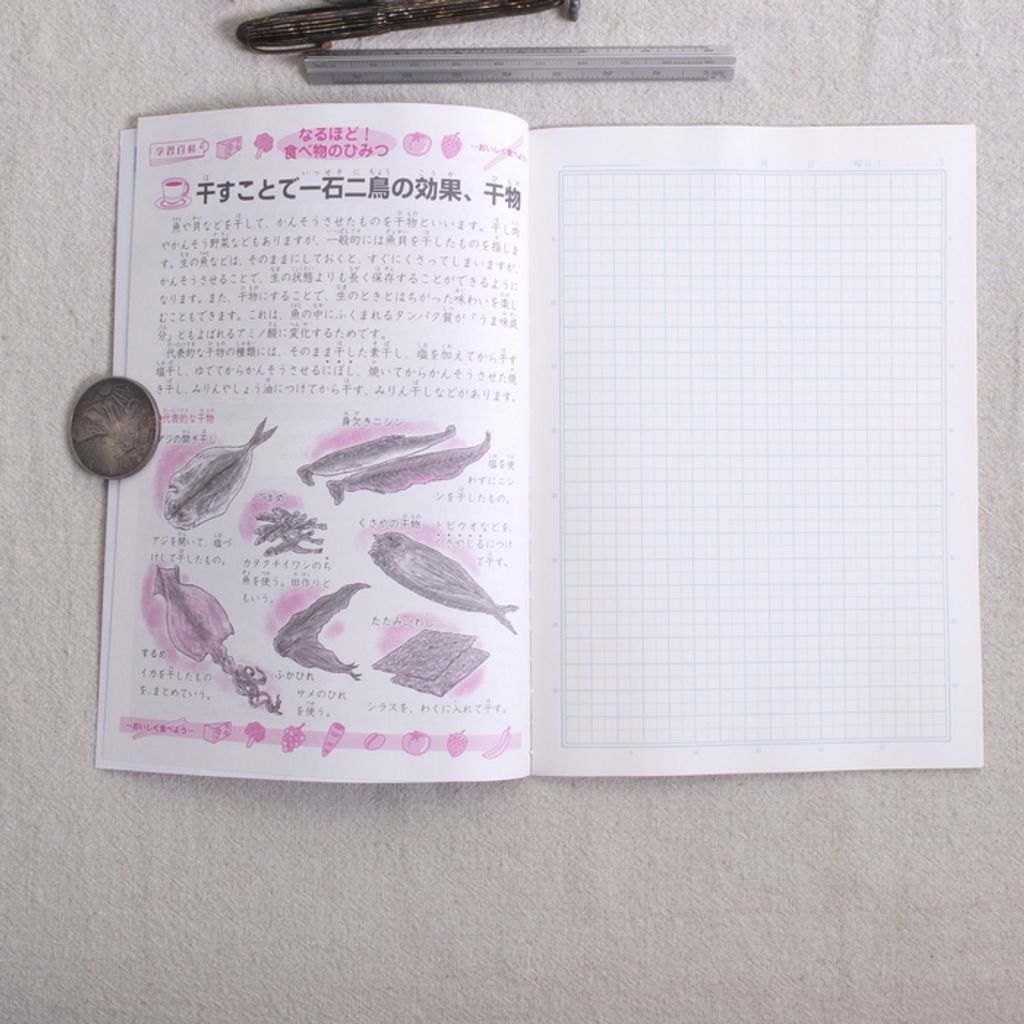 学習百科
なるほど！
食べ物のひみつ
～おいしく食べよう
干すことで一石二鳥の効果、干物
魚や貝などを干して、かんそうさせたものを干物といいます。干し肉
やかんそう野菜などもありますが、一般的には魚貝を干したものを指しま
す。生の魚などは、そのままにしておくと、すぐにくさってしまいますが、
かんそうさせることで、生の状態よりも長く保存することができるように
なります。また、干物にすることで、生のときとはちがった味わいを楽し
むこともできます。これは、魚の中にふくまれるタンパク質が「うま味成
分」ともよばれるアミノ酸に変化するためです。
代表的な干物の種類には、そのまま干した素干し、塩を加えてから干す
塩干し、ゆでてからかんそうさせるにぼし、焼いてからかんそうさせた焼
き干し、みりんやしょう油につけてから干す、みりん干しなどがあります。
代表的な干物
アジの開き干し
アジを開いて、塩づ
けして干したもの。
身欠きニシン
塩を使
わずにニシ
ンを干したもの。
ごまめ
カタクチイワシのち
魚を使う。田作りと
もいう。
くさやの干物
トビウオなどを、
くさやじるにつけ
て干す。
するめ
イカを干したもの
を、まとめていう。
ふかひれ
サメのひれ
を使う。
たたみいわし
シラスを、わくに入れて干す。
～おいしく食べよう～
月 日 曜日（ ）